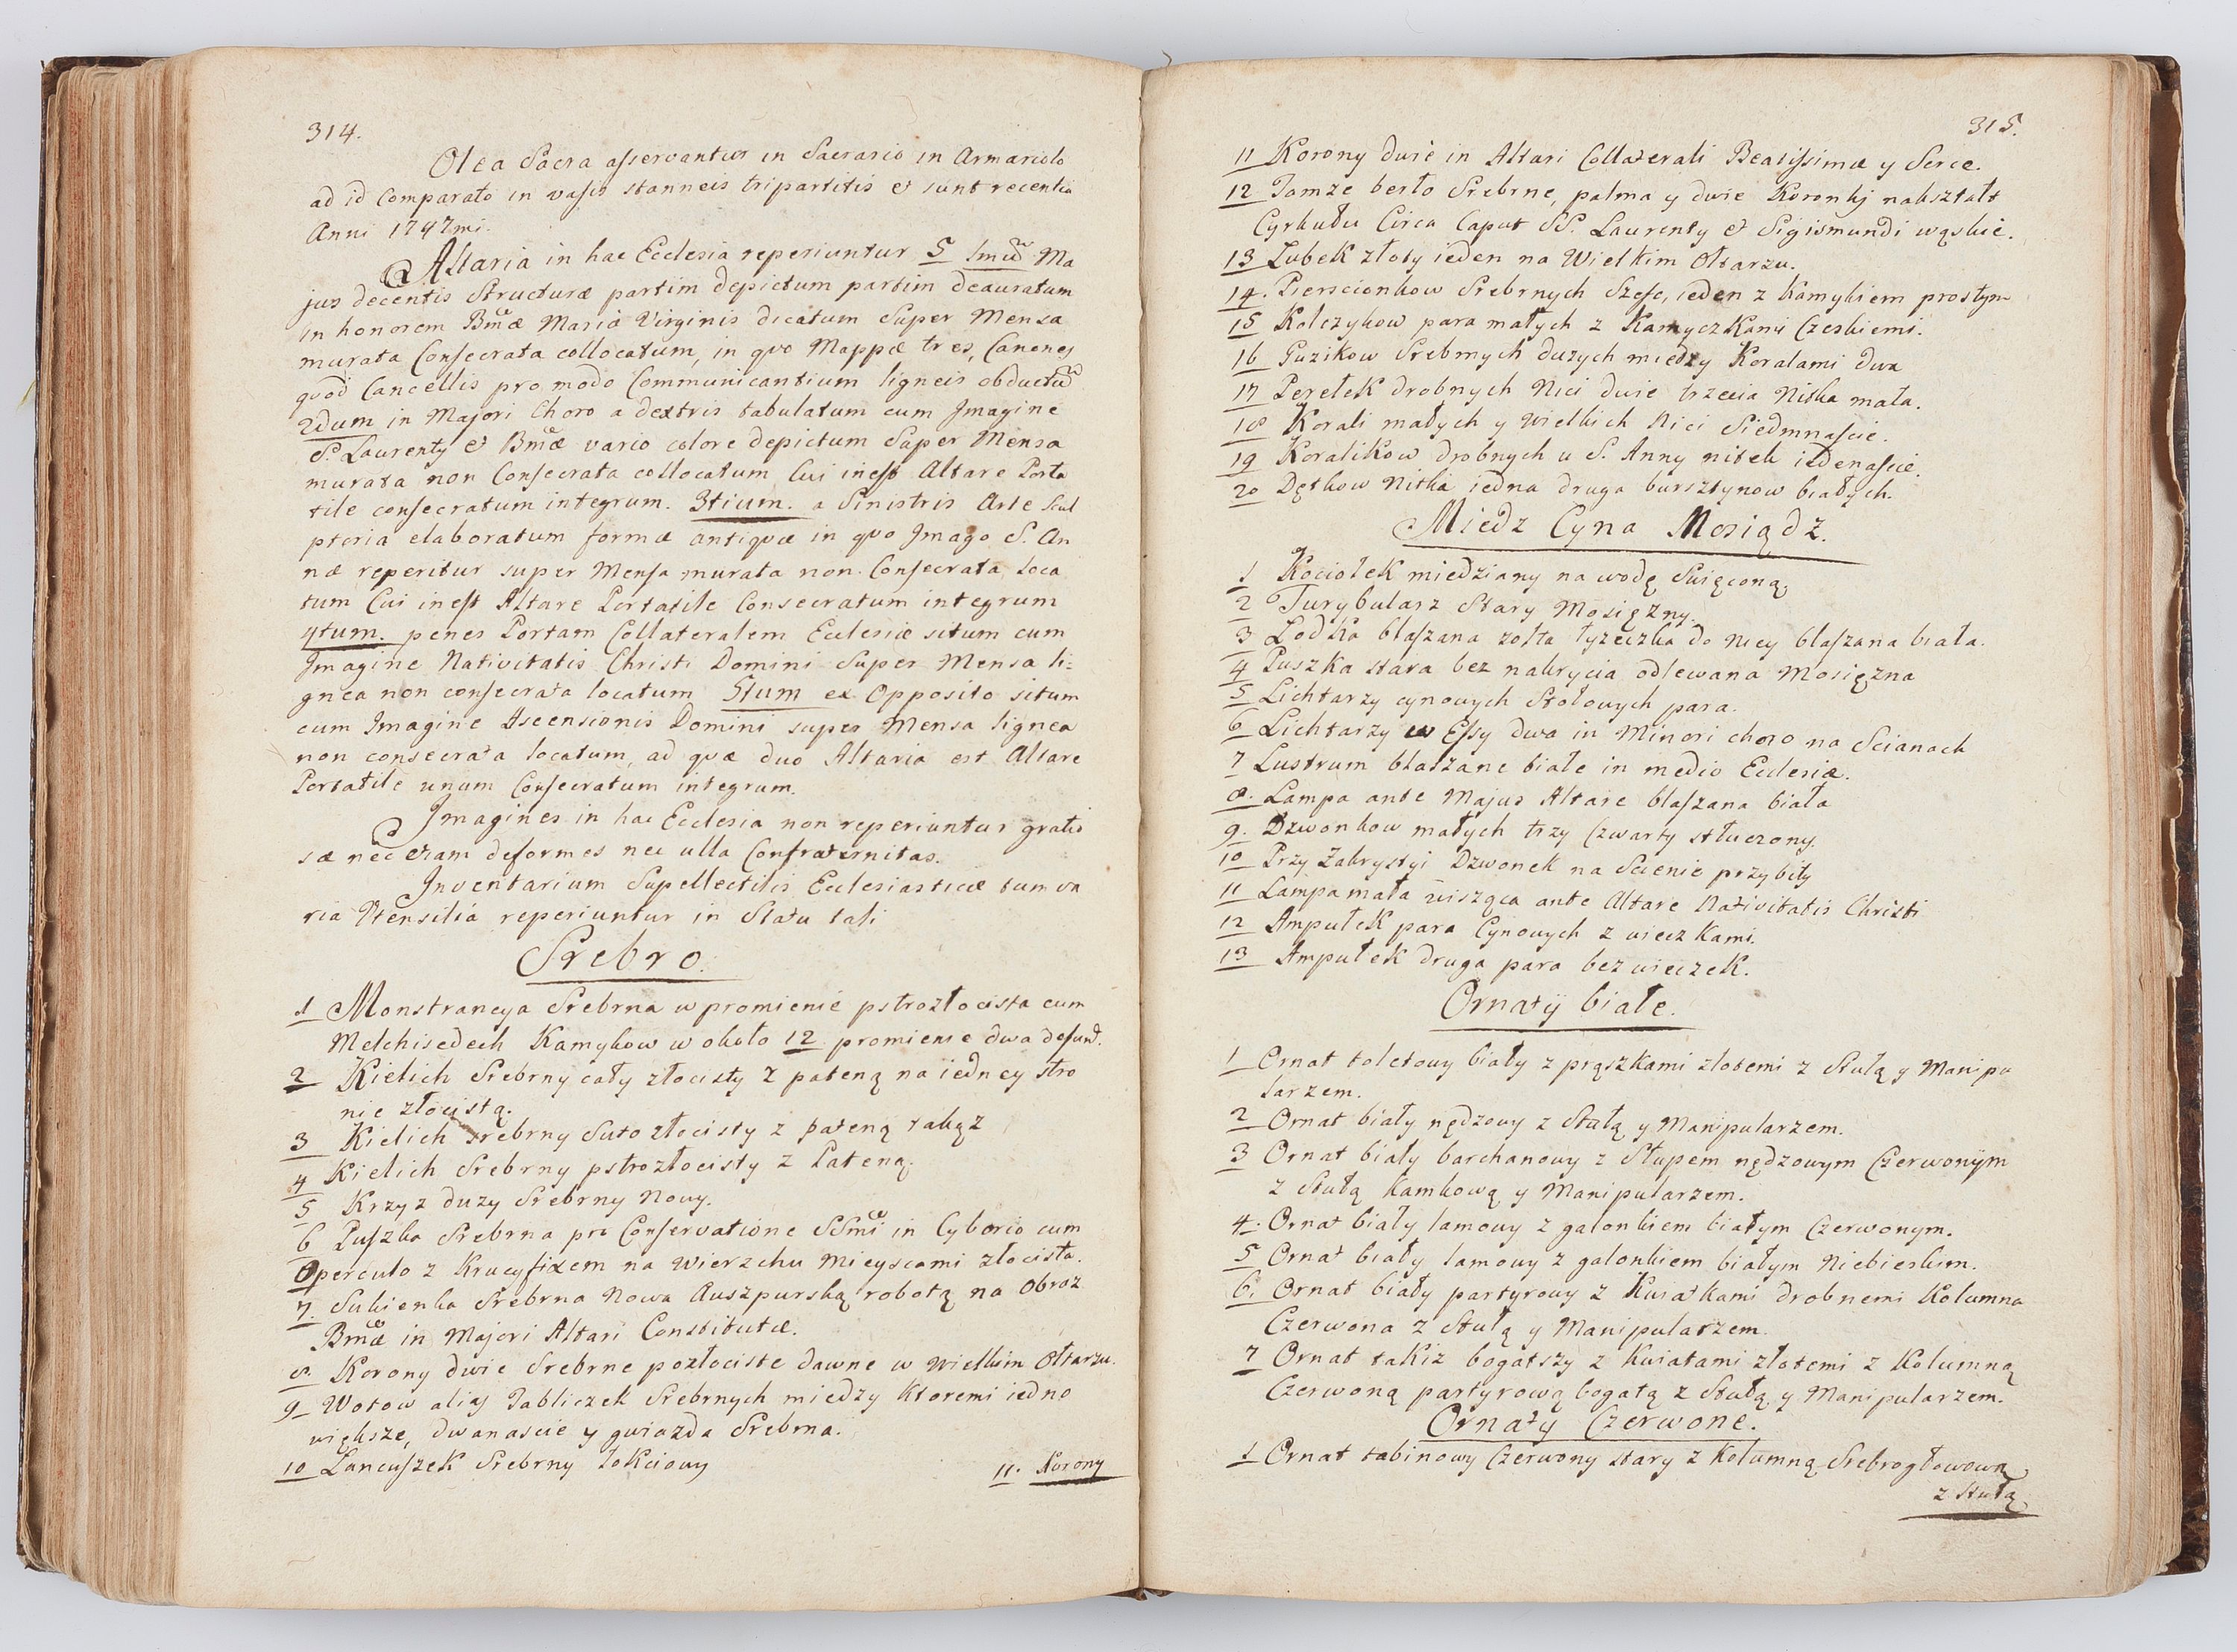 314.
Olea Sacra asservantur in Sacrario in Armariolo
ad id Comparato in vasis stanneis tripartitis et sunt recentia
Anni 1747mi.
Altaria in hac Ecclesia reperiuntur 5 1mũ Ma
jus decentis Structuræ partim depictum partim deauratum
in honorem Bmæ Mariæ Virginis dicatum Super Mensa
murata Consecrata collocatum, in qvo Mappæ tres, Canones
qvod Cancellis pro modo Communicantium ligneis obductũ
2dum in Majori Choro a dextris tabulatum cum Imagine
S. Laurenty et Bmæ vario colore depictum Super Mensa
murata non Consecrata collocatum Cui inest Altare Porta
tile consecratum integrum. 3tium. a Sinistris Arte Scul
ptoria elaboratum formæ antiqvæ in qvo Imago S. An
næ reperitur super Mensa murata non Consecrata loca
tum Cui inest Altare Portatile Consecratum integrum
4tum. penes Portam Collateralem Ecclesiæ situm cum
Imagine Nativitatis Christi Domini Super Mensa li=
gnea non consecrata locatum 5tum ex Opposito situm
cum Imagine Ascensionis Domini super Mensa lignea
non consecrata locatum, ad qvæ duo Altaria est Altare
Portatile unum Consecratum integrum.
Imagines in hac Ecclesia non reperiuntur gratio
sæ nec etiam deformes nec ulla Confraternitas.
Inventarium Supellectilis Ecclesiasticæ tum va
ria Utensilia reperiuntur in Statu tali
Srebro.
1 Monstrancya Srebrna w promienie pstrozłocista cum
Melchisedech Kamykow w około 12 promienie dwa desunt.
2 Kielich Srebrny cały złocisty z pateną na iedney stro
nie złocistą.
3 Kielich srebrny Suto złocisty z pateną takąz
4 Kielich Srebrny pstrozłocisty z Pateną.
5 Krzyz duzy Srebrny Nowy.
6 Puszka Srebrna pro Conservatione SSmi in Cyborio cum
Operculo z Krucyfixem na Wierzchu Mieyscami złocista.
7. Sukienka Srebrna Nowa Auszpurską robotą na Obraz
Bmæ in Majori Altari Constitutæ.
8. Korony dwie Srebrne pozłociste dawne w Wielkim Ołtarzu.
9 Wotow alias Tabliczek Srebrnych miedzy Ktoremi iedno
większe, dwanascie y gwiazda Srebrna.
10 Łancuszek Srebrny łokciowy
11. Korony
315.
11 Korony dwie in Altari Collaterali Beatissimæ y Serce.
12 Tamze berło Srebrne, palma y dwie Koronki nakształt
Cyrkułu Circa Caput SS. Laurenty et Sigismundi wąskie.
13 Łubek złoty ieden na Wielkim Ołtarzu.
14. Pierscionkow Srebrnych Szesc, ieden z Kamykiem prostym
15 Kolczykow para małych z Kamyczkami Czeskiemi.
16 Guzikow Srebrnych duzych miedzy Koralami dwa
17 Perełek drobnych Nici dwie trzecia Nitka mała.
18 Korali małych y wielkich Nici Siedmnascie.
19 Koralikow drobnych u S. Anny nitek iedenascie.
20 Dętkow Nitka iedna druga bursztynow białych.
Miedz Cyna Mosiądz.
1 Kociołek miedziany na wodę Swięconą,
2 Turybularz Stary Mosięzny.
3 Lodka blaszana zołta łyzeczka do Niey blaszana biała.
4 Puszka stara bez nakrycia odlewana Mosięzna
5 Lichtarzy cynowych Stołowych para.
6 Lichtarzy w Essy dwa in Minori choro na Scianach
7 Lustrum blaszane białe in medio Ecclesiæ.
8. Lampa ante Majus Altare blaszana biała
9. Dzwonkow małych trzy Czwarty stłuczony.
10 Przy Zakrystyi Dzwonek na Scienie przybity
11 Lampa mała wisząca ante Altare Nativitatis Christi
12 Ampułek para Cynowych z wieczkami.
13 Ampułek druga para bez wieczek.
Ornaty białe.
1 Ornat toletowy biały z prązkami złotemi z Stułą y Manipu
larzem.
2 Ornat biały nędzowy z Stułą y Manipularzem.
3 Ornat biały barchanowy z Słupem nędzowym Czerwonym
z Stułą Kamkową y Manipularzem.
4. Ornat biały lamowy z galonkiem białym Czerwonym.
5 Ornat biały lamowy z galonkiem białym Niebieskim.
6. Ornat biały partyrowy z Kwiatkami drobnemi Kolumna
Czerwona z Stułą y Manipularzem.
7 Ornat takiz bogatszy z Kwiatami złotemi z Kolumną
Czerwoną partyrową bogatą z Stułą y Manipularzem.
Ornaty Czerwone.
1 Ornat tabinowy Czerwony stary z Kolumną Srebrogłowową
z Stułą,